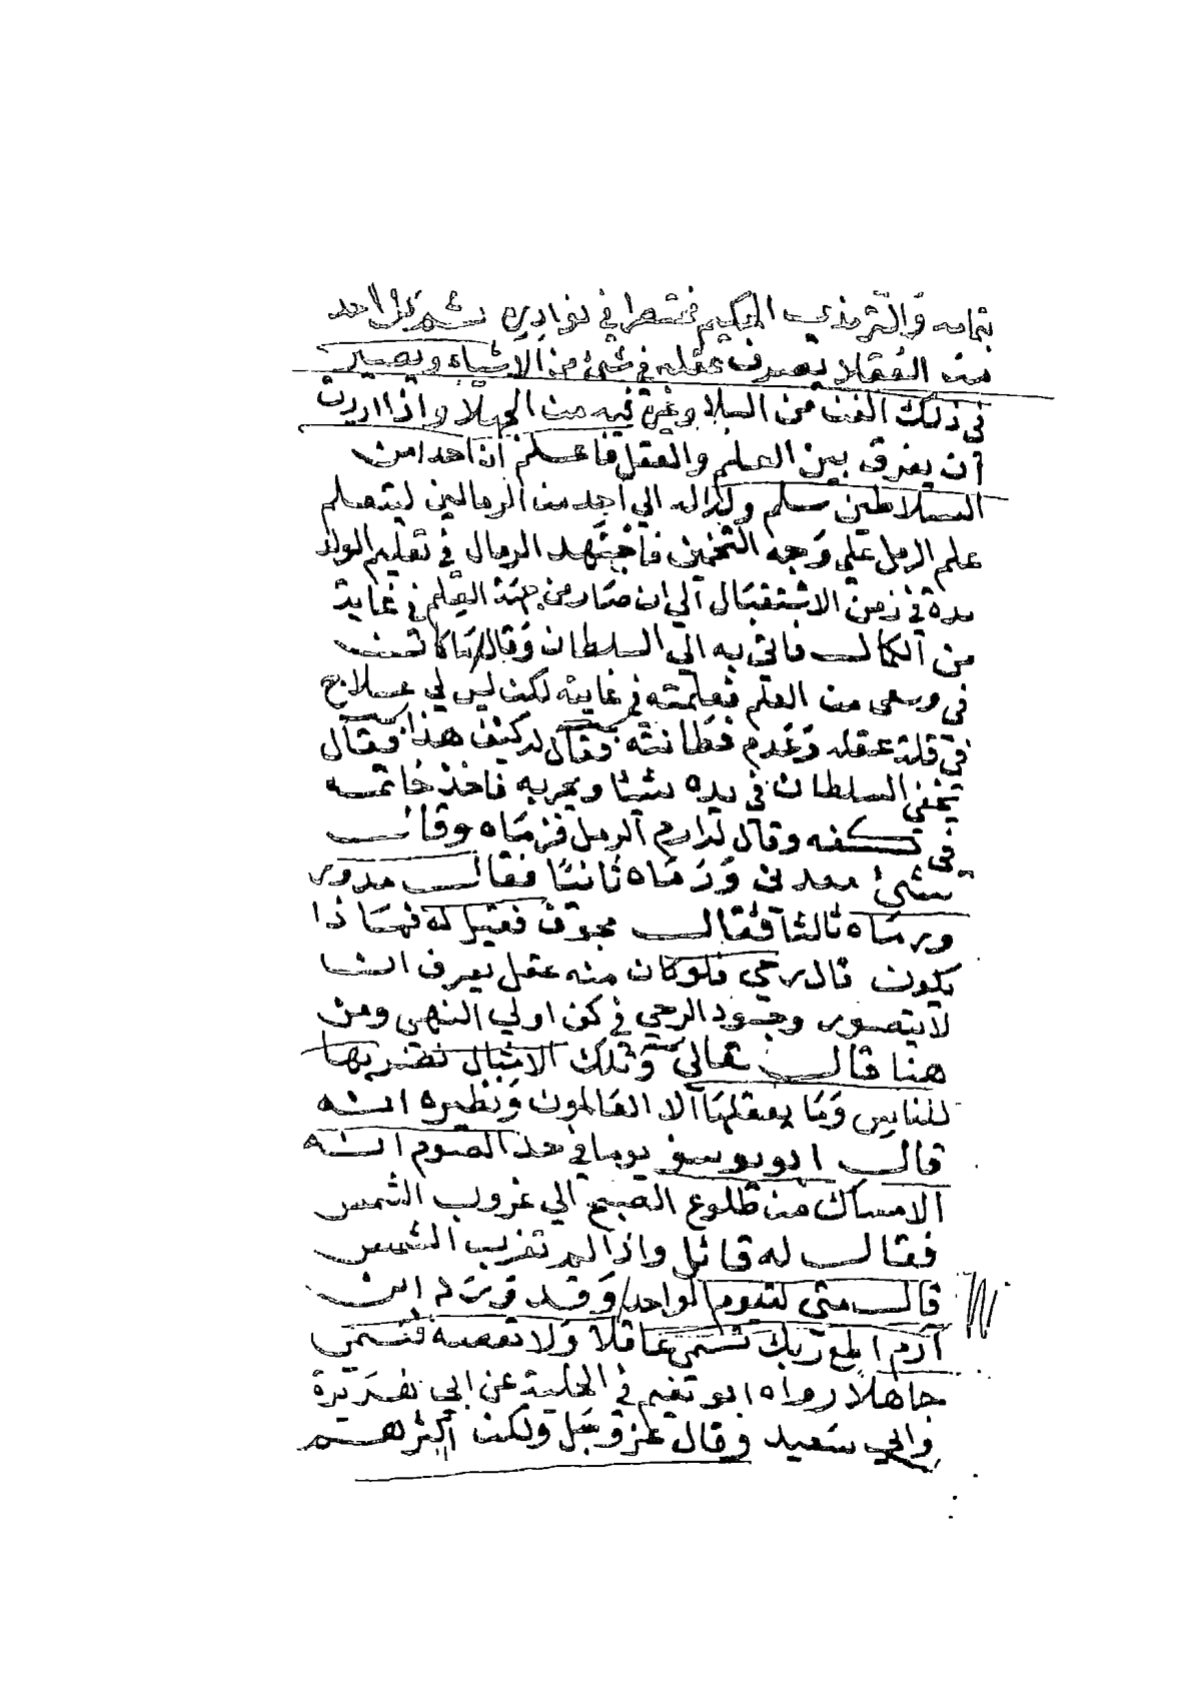 بتمامه والترمذي الحكيم مختصرا في نوادره ثم كل احد
من العقلا يصرف عقله في شئ من الاشياء ويصير
في ذلك الفن من البلا وغيره فيه من الجهلا واذا اردت
ان يفرق بين العلم والعقل فاعلم ان احدا من
السلاطين سلم ولدا له الي احد من الرمالين ليتعلم
علم الرمل علي وجه التخمين فاجتهد الرمال في تعليم الولد
مدة في زمن الاستقبال الي ان صار من جهة العلم في غاية
من الكمال فاتي به الي السلطان وقال ما كانت
في وسعي من العلم فعلمته في غايته لكن ليس لي علاج
في قلة عقله وعدم فطانته فقال له كيف هذا فقال
يخفي السلطان في يده شيئا ويجربه فاخذ خاتمه
في كفه وقال له ارم الرمل فرماه وقال
شئ معدني ورماه ثانيا فقال مدور
ورماه ثالثا فقال مجوف فقيل له فهماذا
يكون قال رحي فلو كان منه عقل يعرف انها
لا يتصور وجود الرحي في كف اولي النهي ومن
هنا قال تعالي وتلك الامثال نضربها
للناس وما يعقلها الا العالمون ونظيره انه
قال ابو يوسف يوما في حد الصوم انه
الامساك من طلوع الصبح الي غروب الشمس
فقال له قائل واذا لم تغرب الشمس
قال متي لتيوم الواحد وقد ورد ابن
آدم اطع ربك تسمي عاقلا ولا تعصه فتسمي
جاهلا رواه ابو نعيم في الحلية عن ابي هريرة
وابي سعيد وقال عز وجل ولكن اكثرهم